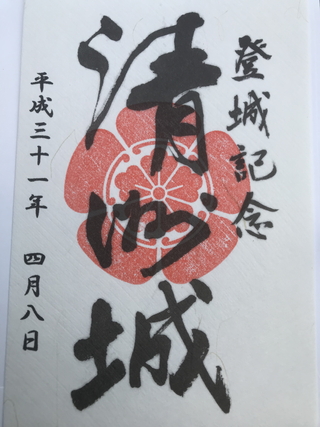 登城記念
清洲城
平成三十一年 四月八日